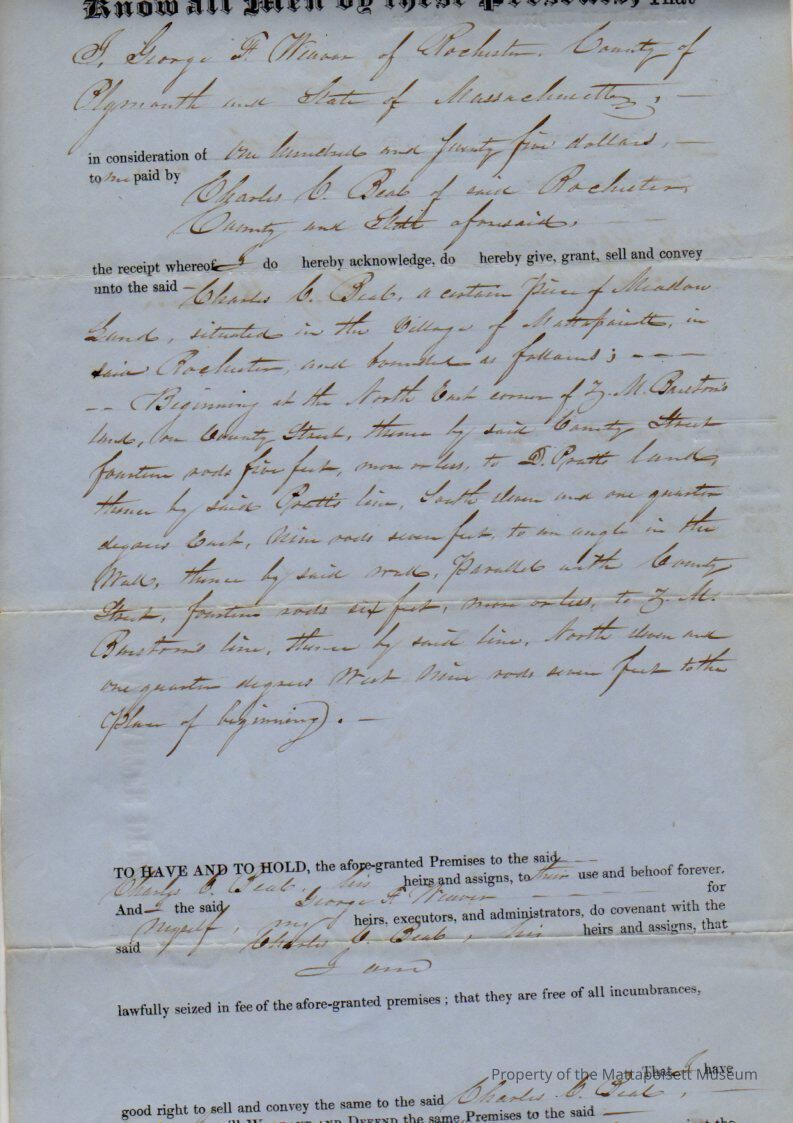 Know all Men by these Presents, That
I, George F. Weaver of Rochester, County of
Plymouth and State of Massachusetts;
in consideration of one hundred and seventy five dollars,
to me paid by
Charles C. Beal of said Rochester
County and State aforesaid,
the receipt whereof I do hereby acknowledge, do hereby give, grant, sell and convey
unto the said Charles C. Beal, a certain piece of Meadow
Land, situated in the Village of Mattapoisett, in
said Rochester, and bounded as follows; - - - -
-- Beginning at the North East corner of Z. M. Barstow's
land, on County Street, thence by said County Street
fourteen rods five feet, more or less, to D. Pratts land,
thence by said Pratt's line, South eleven and one quarter
degrees East, Nine rods seven feet, to an angle in the
Wall, thence by said wall, Parallel with County
Street, fourteen rods six feet, more or less, to Z. M.
Barstow's line, thence by said line, North eleven and
one quarter degrees West Nine rods seven feet to the
Place of beginning). -
TO HAVE AND TO HOLD, the afore-granted Premises to the said
Charles C. Beal, his heirs and assigns, to their use and behoof forever.
And I the said George F. Weaver for
myself, my heirs, executors, and administrators, do covenant with the
said Charles C. Beal, his heirs and assigns, that
I am
lawfully seized in fee of the afore-granted premises; that they are free of all incumbrances,
That I have
good right to sell and convey the same to the said Charles C. Beal,
will WARRANT AND DEFEND the same Premises to the said
Property of the Mattapoisett Museum